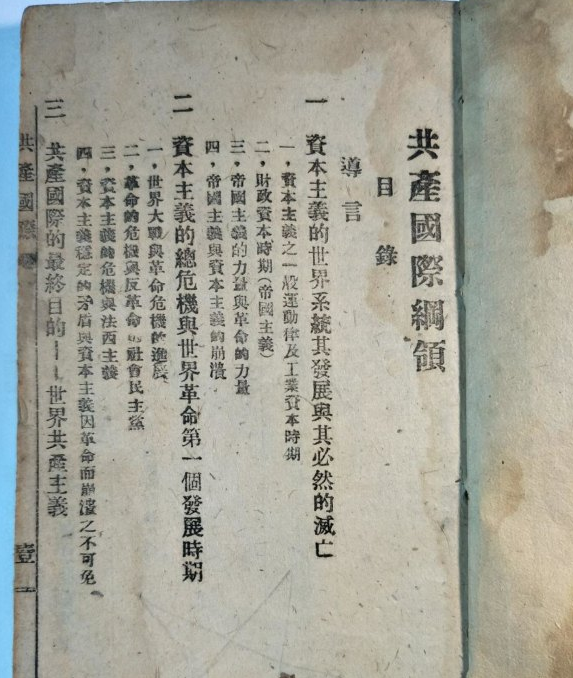 共產國際綱領
目錄
導言
一 資本主義的世界系統其發展與其必然的滅亡
一，資本主義之一般運動律及工業資本時期
二，財政資本時期（帝國主義）
三，帝國主義的力量與革命的力量
四，帝國主義與資本主義的崩潰
二 資本主義的總危機與世界革命第一個發展時期
一，世界大戰與革命危機的進展
二，革命的危機與反革命的社會民主黨
三，資本主義的危機與法西主義
四，資本主義穩定的矛盾與資本主義因革命而崩潰之不可免
三 共產國際的最終目的——世界共產主義
共產國際
壹 一